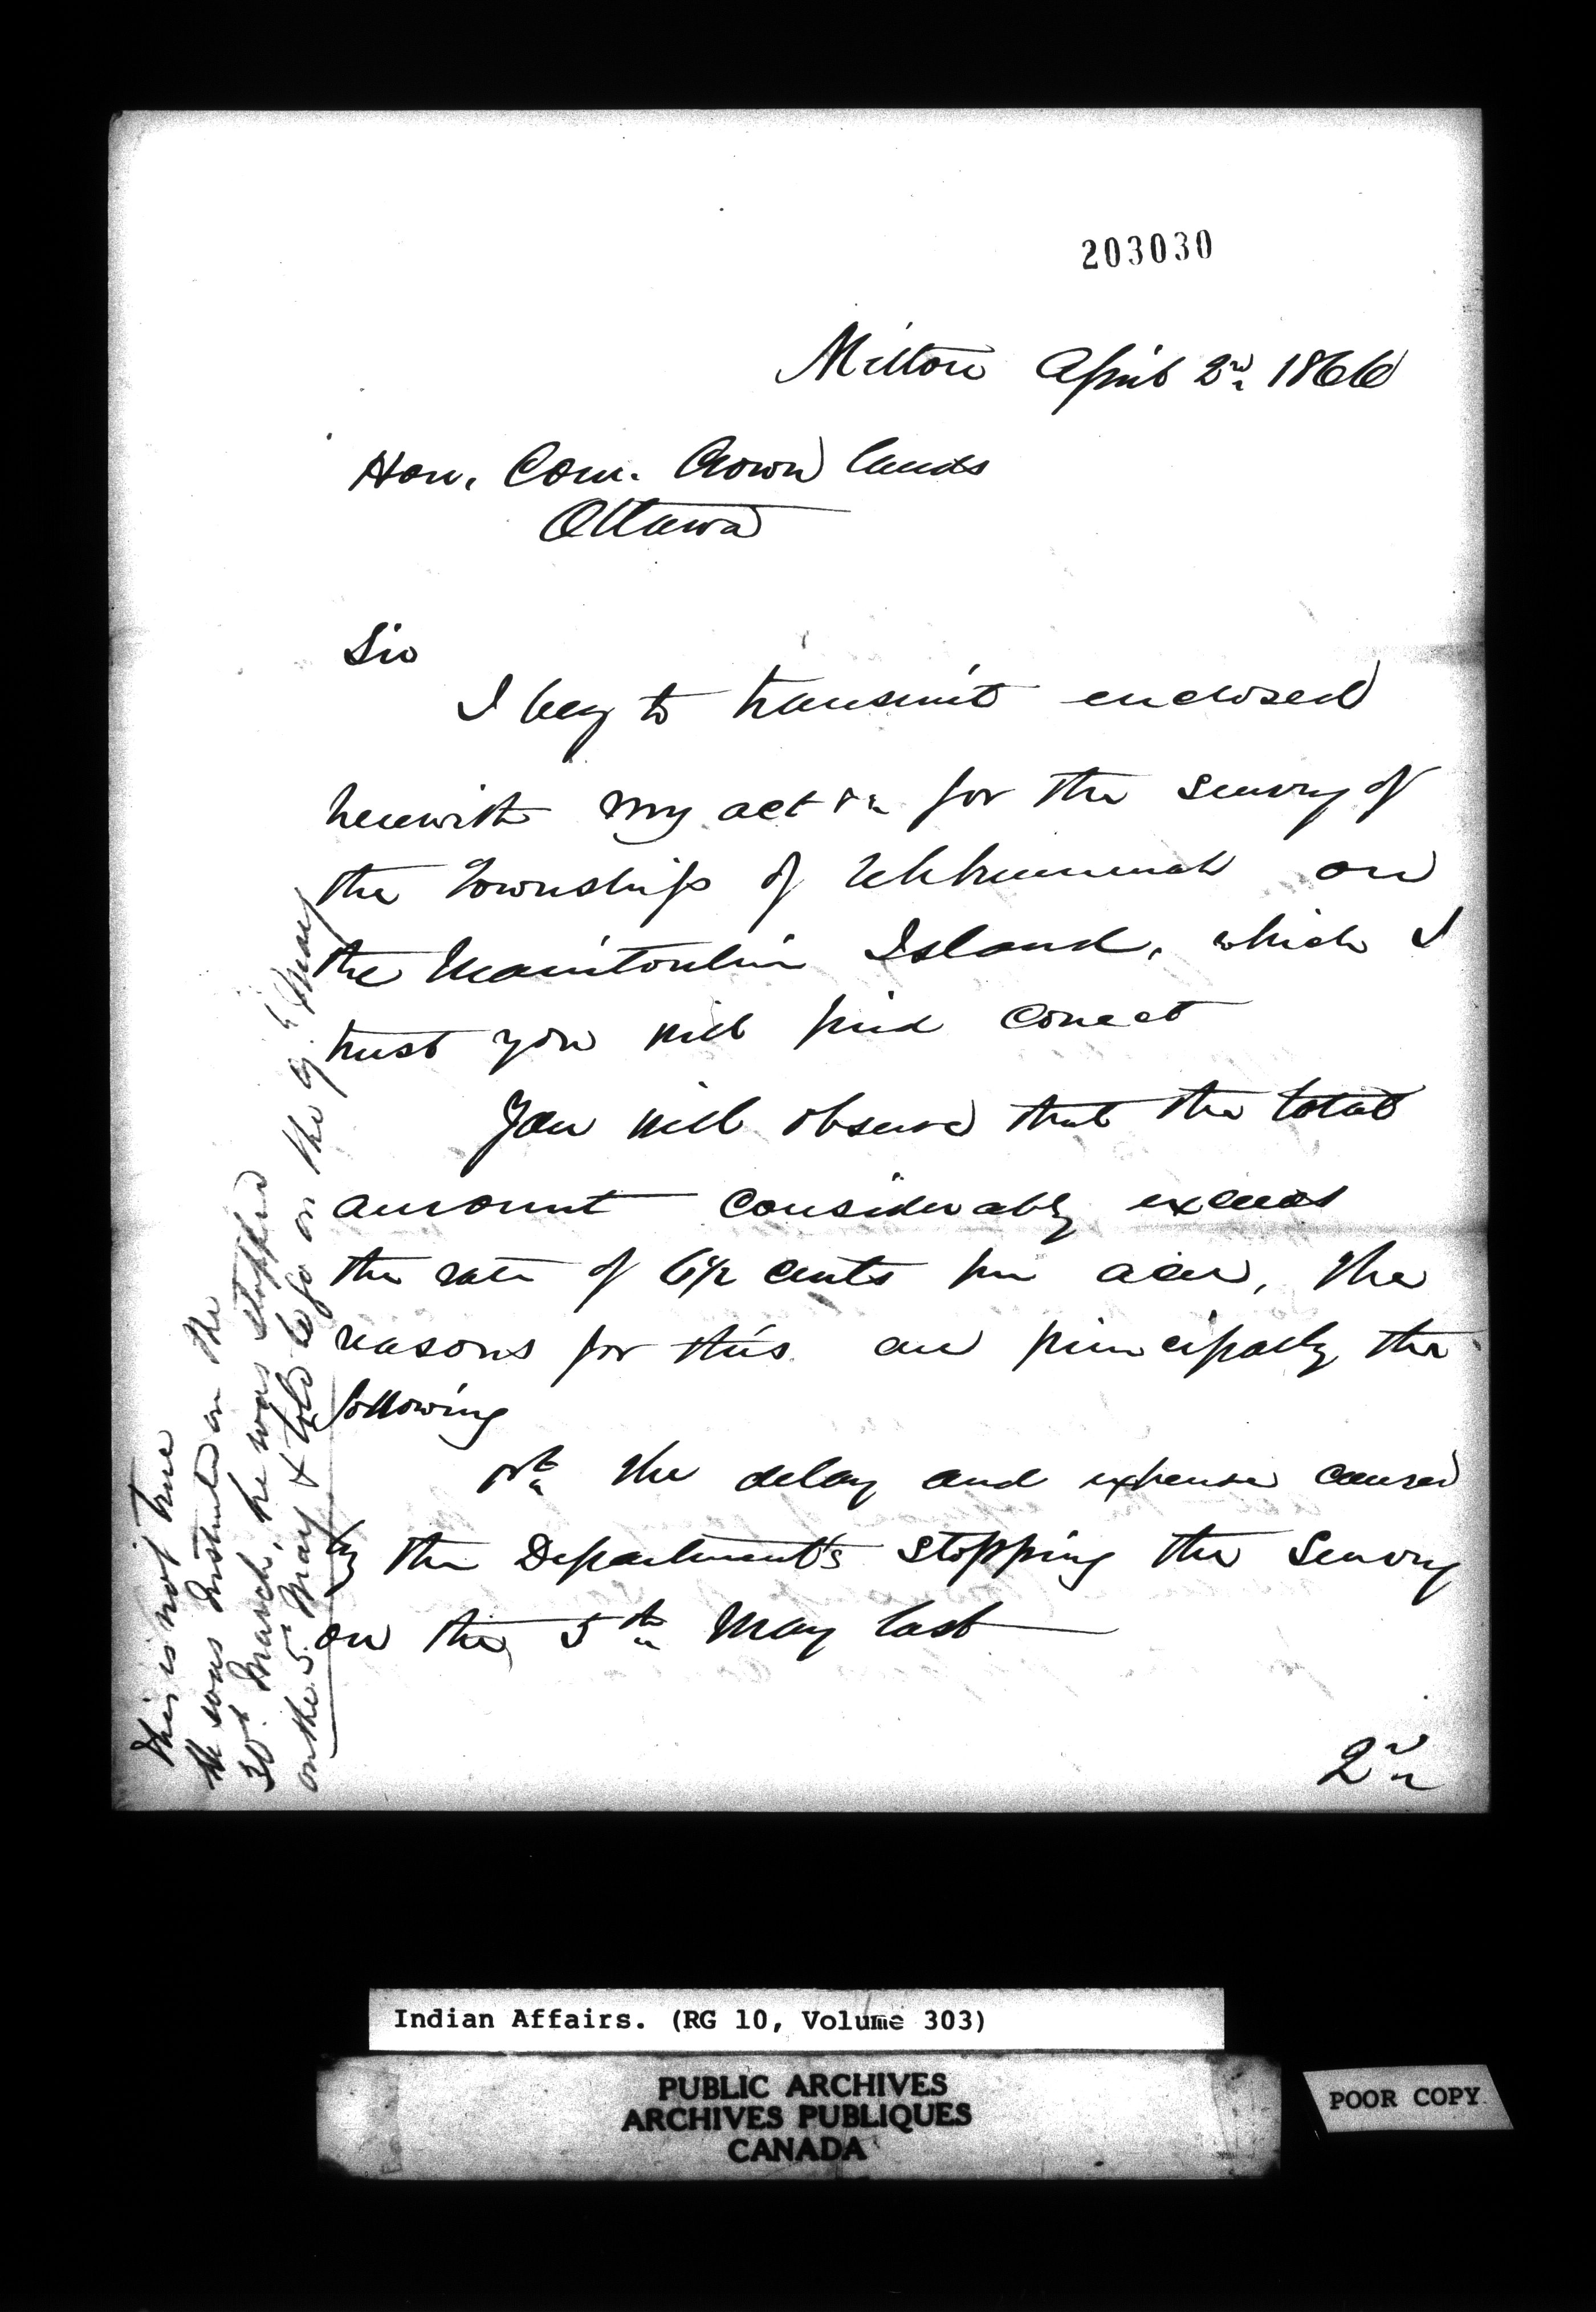 203030
Milton April 2nd 1866
Hon. Com. Crown lands
Ottawa
Sir
I beg to transmit enclosed
herewith my act &c for the survey of
the Township of Tehkummah on
the Manitoulin Island, which I
trust you will find correct
You will observe that the total
amount considerably exceeds
the rate of 6½ cents per acre, The
reasons for this are principally the
following
1st The delay and expense caused
by the Department's stopping the Survey
on the 5th May last
2nd
This is not true
He was instructed on the
30th March, he was stopped
on the 5th May & told to go on the 9th May
Indian Affairs. (RG 10, Volume 303)
PUBLIC ARCHIVES
ARCHIVES PUBLIQUES
CANADA
POOR COPY